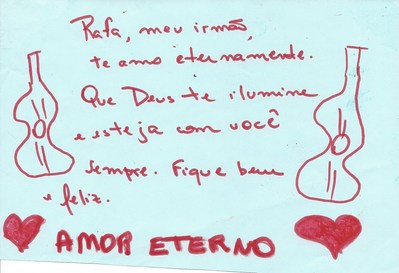 Rafa, meu irmão,
te amo eternamente.
Que Deus te ilumine
e esteja com você
sempre. Fique bem
e feliz.
AMOR ETERNO